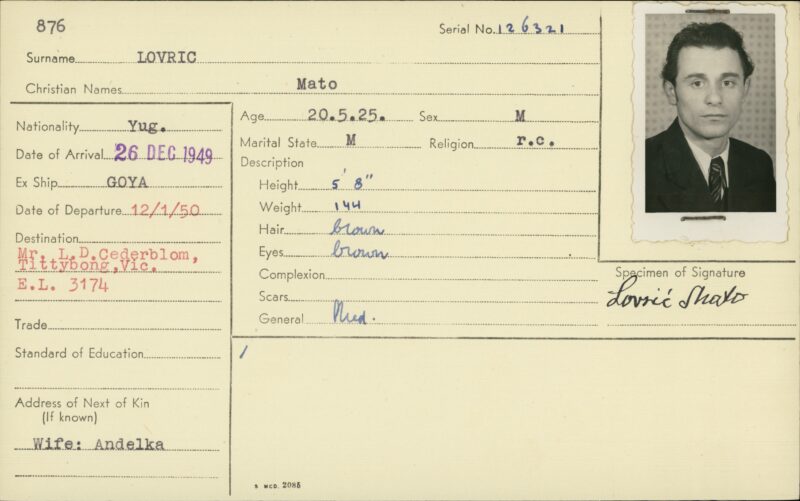 876
Serial No. 126321
Surname LOVRIC
Christian Names Mato
Nationality Yug.
Date of Arrival 26 DEC 1949
Ex Ship GOYA
Date of Departure 12/1/50
Destination
Mr. L.D.Cederblom,
Tittybong,Vic.
E.L. 3174
Trade
Standard of Education
Address of Next of Kin
(If known)
Wife: Andelka
Age 20.5.25. Sex M
Marital State M Religion r.c.
Description
Height 5' 8"
Weight 144
Hair brown
Eyes brown
Complexion
Scars
General Med.
Specimen of Signature
Lovrić Mato
S MCD. 2085